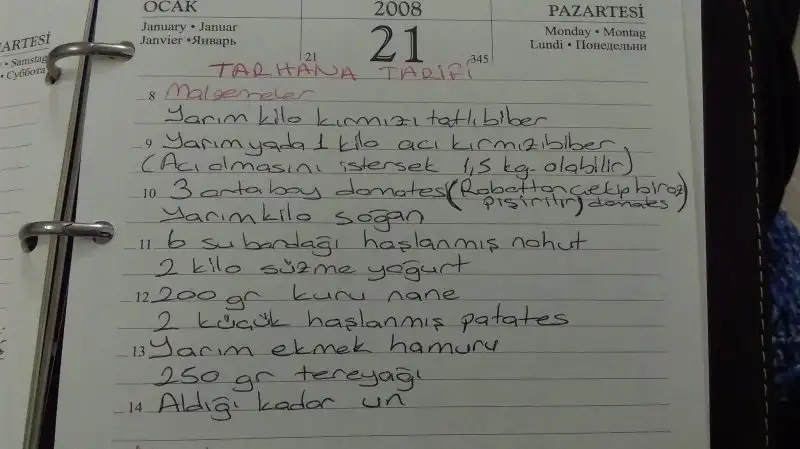 OCAK 2008 PAZARTESİ
January • Januar Monday • Montag
Janvier • Январь 21 Lundi • Понедельни
ZARTESİ
• Samstag
• Суббота
21 345
TARHANA TARİFİ
8 Malzemeler
Yarım kilo kırmızı tatlı biber
9 Yarım yada 1 kilo acı kırmızıbiber
(Acı olmasını istersek 1,5 kg. olabilir)
10 3 orta boy domates (Robottan çekip biraz
pişirilir) domates)
Yarım kilo soğan
11 6 su bardağı haşlanmış nohut
2 kilo süzme yoğurt
12 200 gr kuru nane
2 küçük haşlanmış patates
13 Yarım ekmek hamuru
250 gr tereyağı
14 Aldığı kadar un